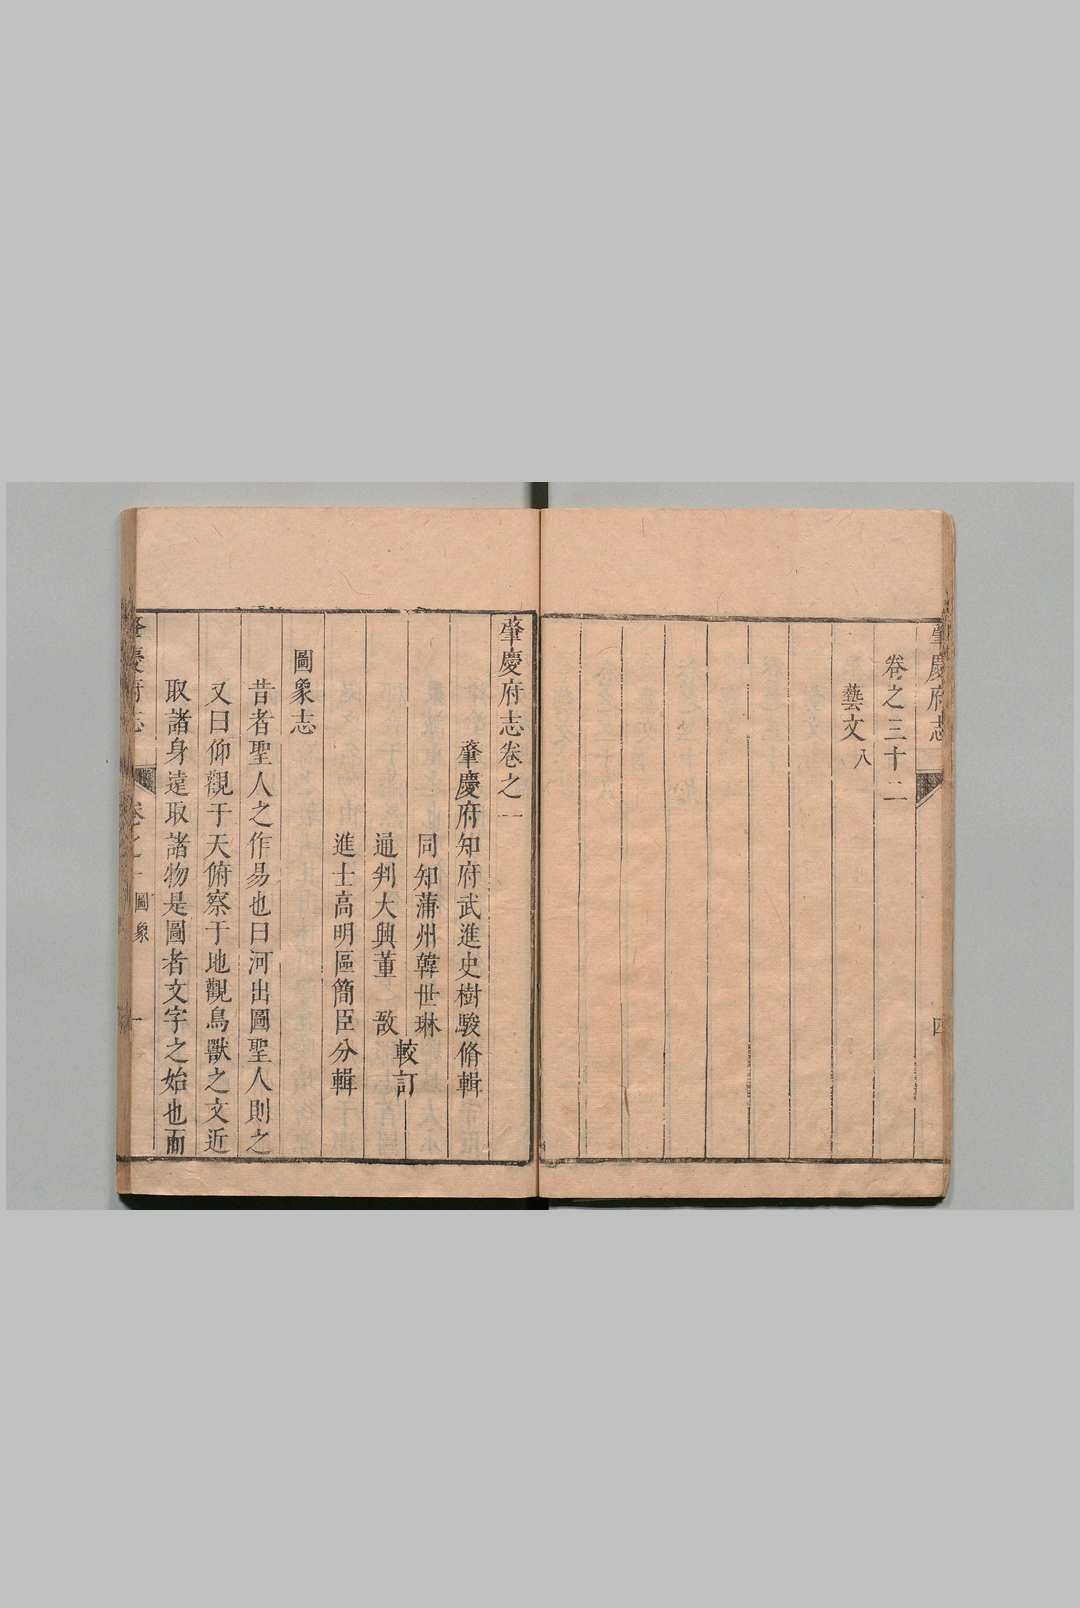 肇慶府志
四
卷之三十二
藝文八
肇慶府志卷之一
肇慶府知府武進史樹駿脩輯
同知蒲州韓世琳
通判大興董㪚
較訂
進士高明區簡臣分輯
圖象志
昔者聖人之作易也曰河出圖聖人則之
又曰仰觀于天俯察于地觀鳥獸之文近
取諸身遠取諸物是圖者文字之始也而
肇慶府志
卷之一
圖象
一